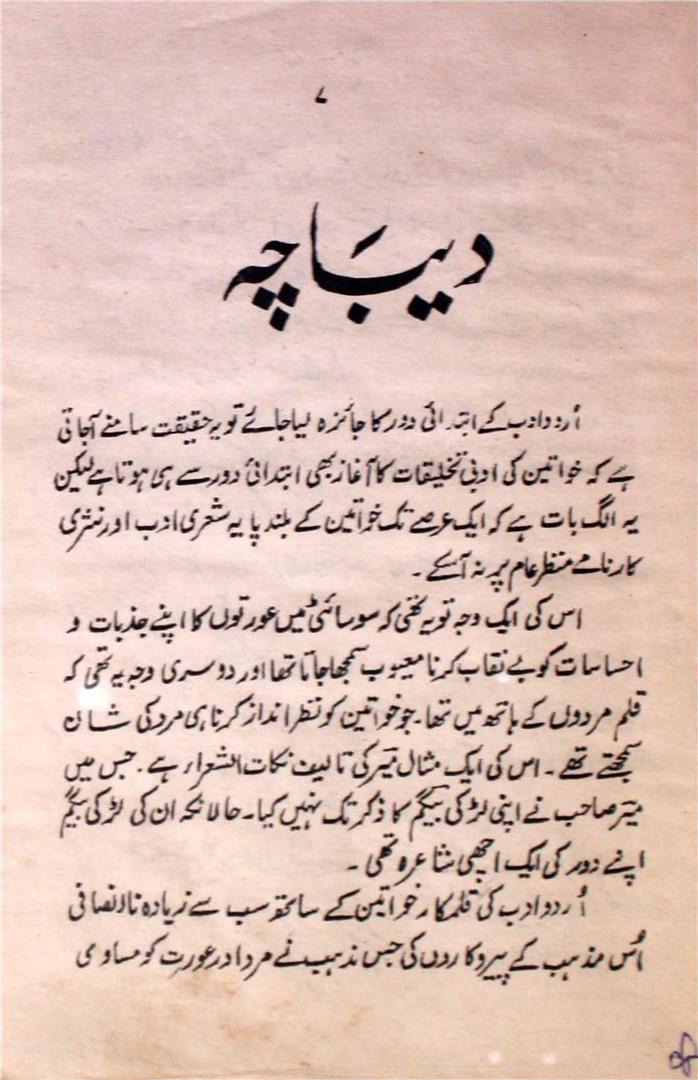 ۷
دیبَاچہ
اُردو ادب کے ابتدائی دور کا جائزہ لیا جائے تو یہ حقیقت سامنے آجاتی
ہے کہ خواتین کی ادبی تخلیقات کا آغاز بھی ابتدائی دور سے ہی ہوتا ہے لیکن
یہ الگ بات ہے کہ ایک عرصے تک خواتین کے بلند پایہ شعری ادب اور نثری
کارنامے منظر عام پر نہ آسکے۔
اس کی ایک وجہ تو یہ تھی کہ سوسائٹی میں عورتوں کا اپنے جذبات و
احساسات کو بے نقاب کرنا معیوب سمجھا جاتا تھا اور دوسری وجہ یہ تھی کہ
قلم مردوں کے ہاتھ میں تھا۔ جو خواتین کو نظر انداز کرنا ہی مرد کی شان
سمجھتے تھے۔ اس کی ایک مثال میرؔ کی تالیف نکات الشعراء ہے۔ جس میں
میرؔ صاحب نے اپنی لڑکی بیگم کا ذکر تک نہیں کیا۔ حالانکہ ان کی لڑکی بیگم
اپنے دور کی ایک اچھی شاعرہ تھی۔
اُردو ادب کی قلمکار خواتین کے ساتھ سب سے زیادہ ناانصافی
اُس مذہب کے پیروکاروں کی جس مذہب نے مرد اور عورت کو مساوی